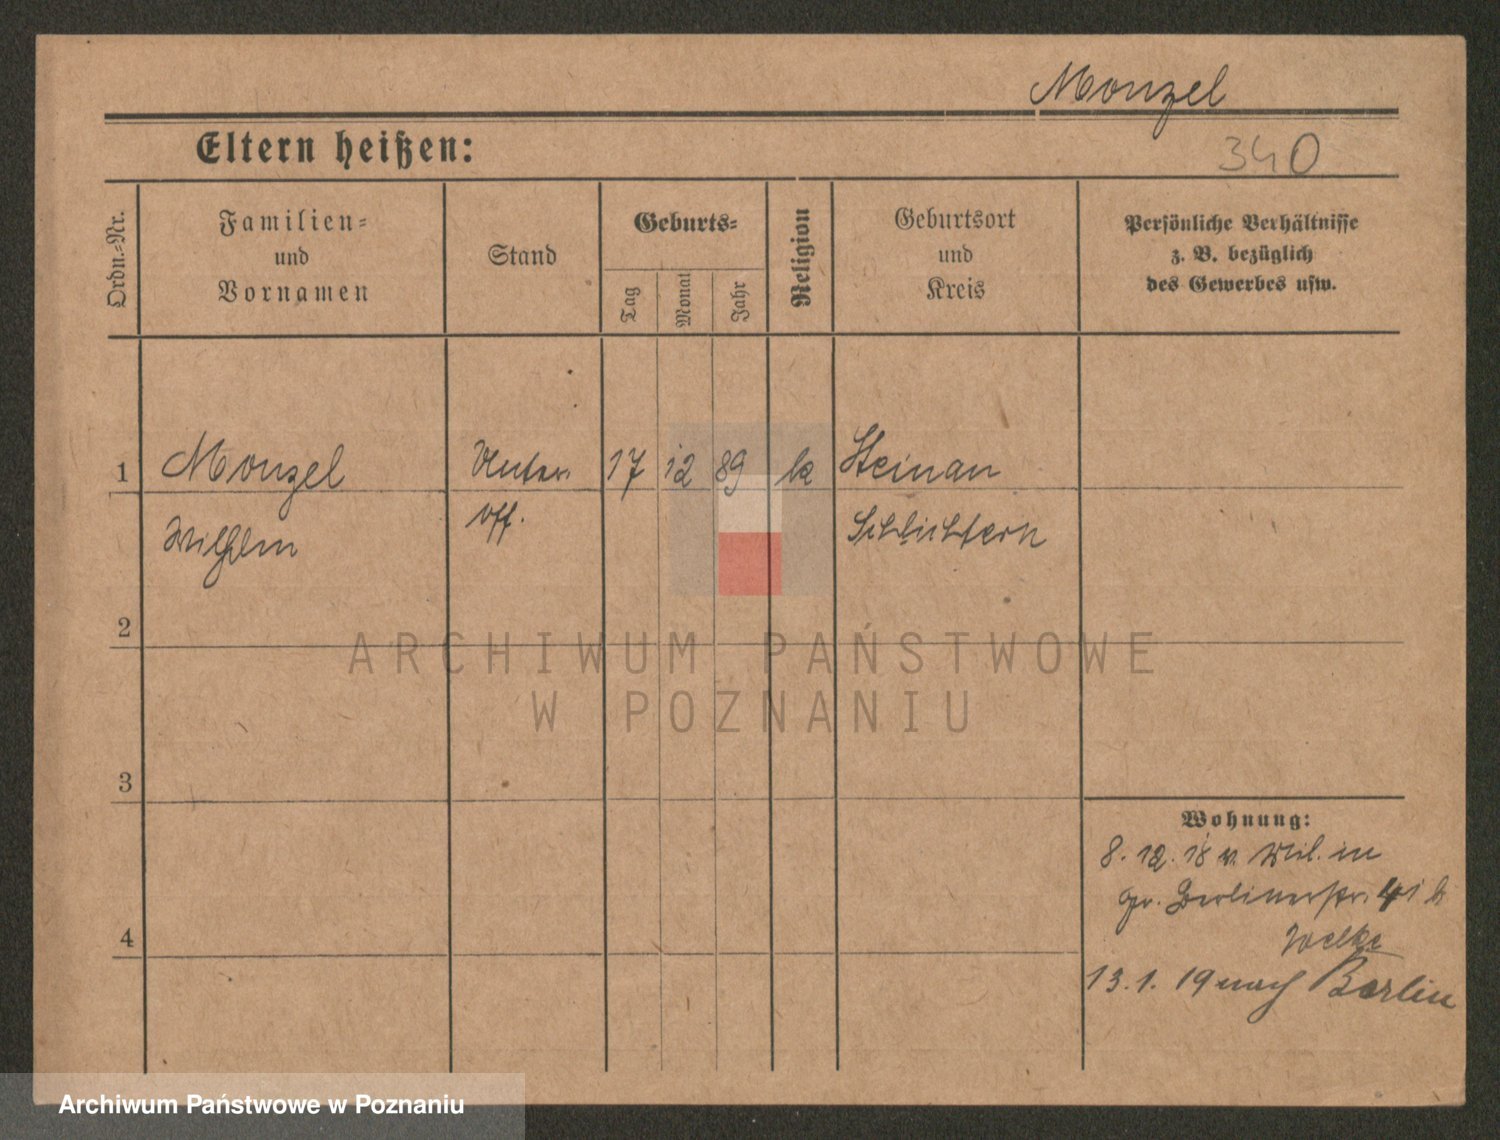 Monzel
Eltern heißen:
340
Ordn.-Nr.
Familien-
und
Vornamen
Stand
Geburts-
Tag
Monat
Jahr
Religion
Geburtsort
und
Kreis
Persönliche Verhältnisse
z. B. bezüglich
des Gewerbes usw.
1
Monzel
Unter.
17
12
89
k
Steinau
Wilhelm
off.
Schlüchtern
2
ARCHIWUM PAŃSTWOWE
W POZNANIU
3
Wohnung:
8. 12. 18 v. Mil. in
gr. Berlinerstr. 41 b
4
13. 1. 19 nach Berlin
Archiwum Państwowe w Poznaniu